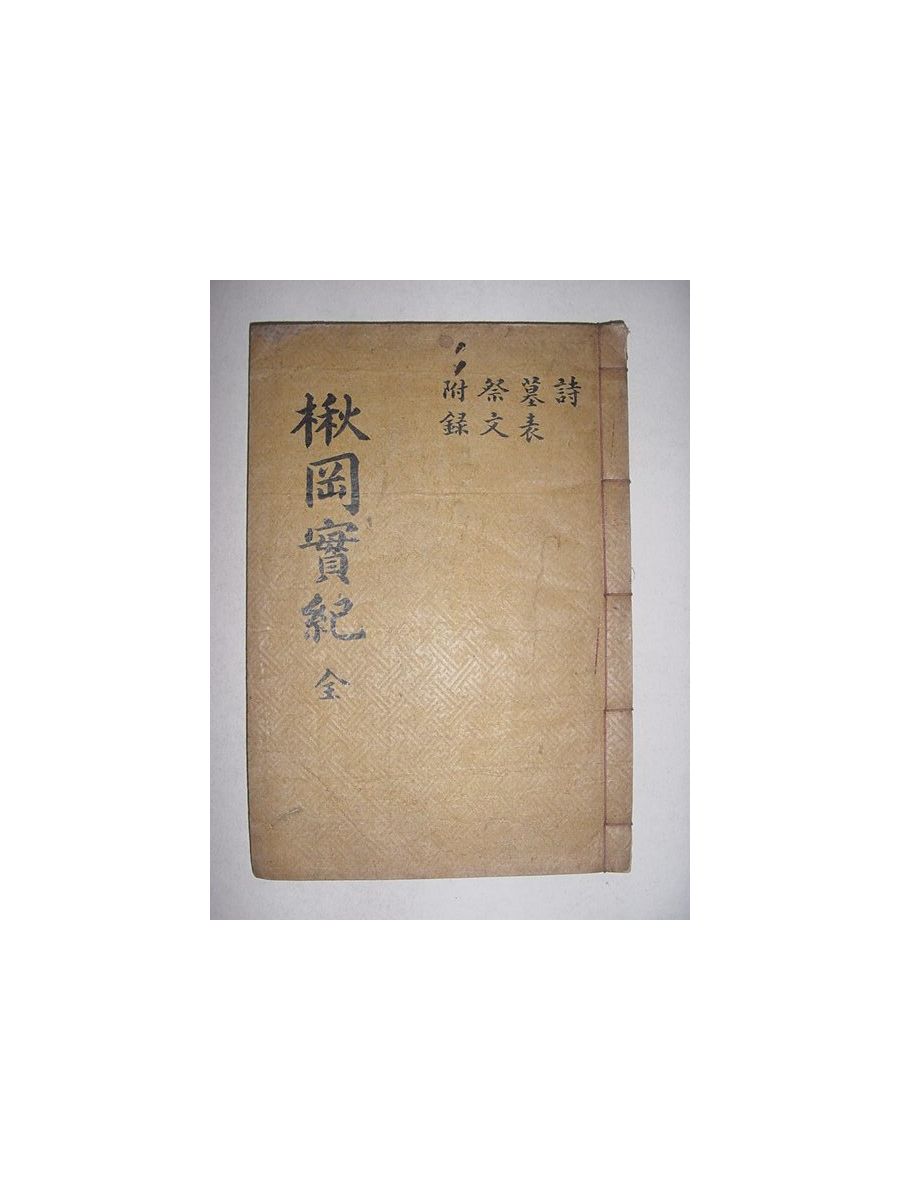 詩
墓表
祭文
附錄
楸岡實紀 全